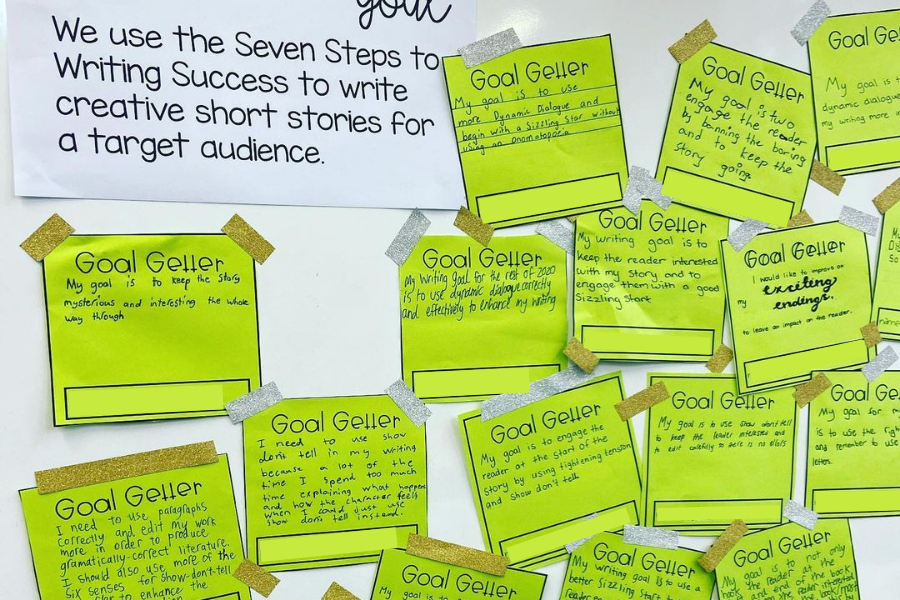 goal
We use the Seven Steps to
Writing Success to write
creative short stories for
a target audience.
Goal Getter
My goal is to use
more Dynamic Dialogue and
begin with a Sizzling Star without
using an onomatopoeia
Goal Getter
My goal is two
engage the reader
by banning the boring
and to keep the
story going
Goal Ge
My goal is t
dynamic dialogue
my writing more i
Goal Getter
My goal is to keep the story
mysterious and interesting the whole
way through
Goal Getter
My writing goal for the rest of 2020
is to use dynamic dialogue correctly
and effectively to enhance my writing
Goal Getter
My writing goal is to
keep the reader interested
with my story and to
engage them with a good
Sizzling Start
Goal Getter
I would like to improve on
my exciting
endings.
to leave an impact on the reader.
Goal Getter
I need to use show
don't tell in my writing
because a lot of the
time I spend too much
time explaining what happens
and how the character feels
when I could just use
show don't tell instead.
Goal Getter
My goal is to engage the
reader at the start of the
story by using tightening tension
and show don't tell
Goal Getter
My goal is to use show don't tell
to keep the reader interested and
to edit carefully so there is no
Goal Ge
My goal for m
is to use the righ
and remember to use
letters.
Goal Getter
I need to use paragraphs
correctly and edit my work
more in order to produce
gramatically-correct literature.
I should also use more of the
six senses for show-don't-tell
to enhance the
Goal Getter
My goal is to
Goal Getter
My writing goal is to use a
better Sizzling Start to
reader
Goal Getter
My goal is to not only
hook the reader at the
and end of the book,